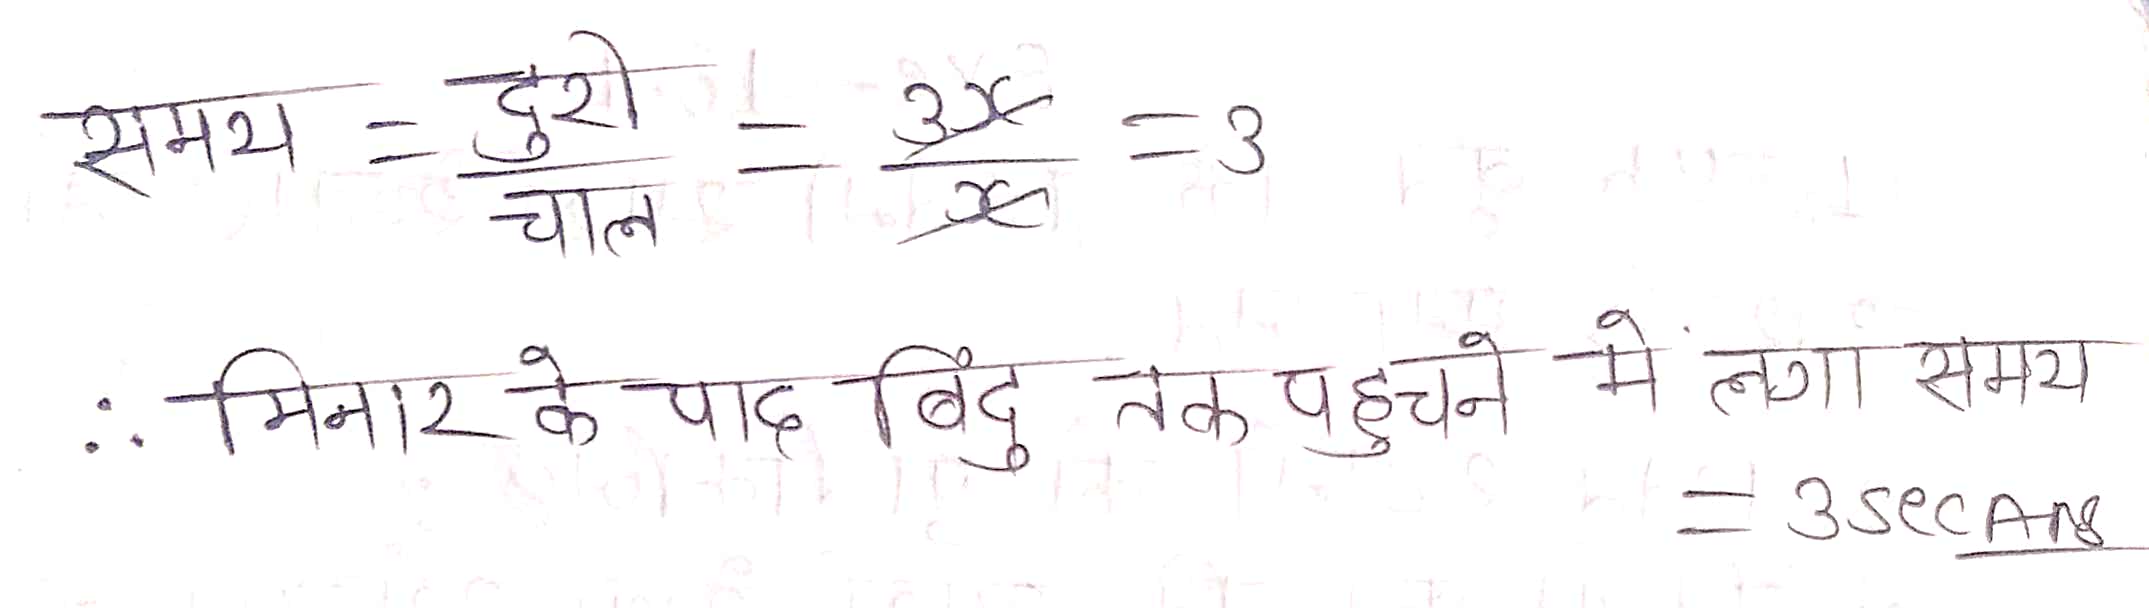 समय = दुरी / चाल = 3x / x = 3
∴ मिनार के पाद बिंदु तक पहुचने मे लगा समय
= 3 sec Ans